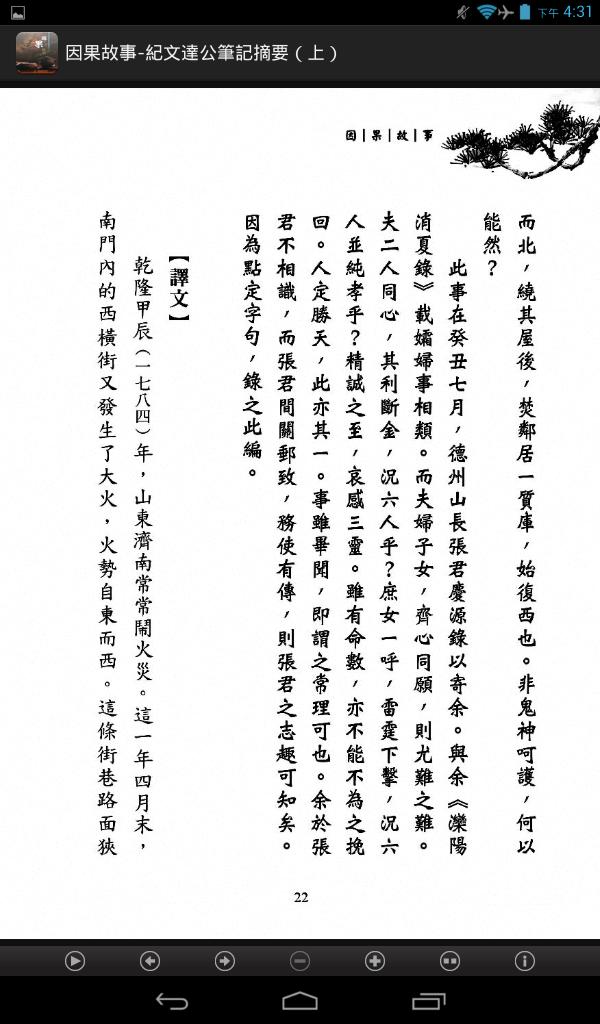 下午 4:31
因果故事-紀文達公筆記摘要（上）
因｜果｜故｜事
而北，繞其屋後，焚鄰居一質庫，始復西也。非鬼神呵護，何以
能然？
此事在癸丑七月，德州山長張君慶源錄以寄余。與余《灤陽
消夏錄》載孀婦事相類。而夫婦子女，齊心同願，則尤難之難。
夫二人同心，其利斷金，況六人乎？庶女一呼，雷霆下擊，況六
人並純孝乎？精誠之至，哀感三靈。雖有命數，亦不能不為之挽
回。人定勝天，此亦其一。事雖異聞，即謂之常理可也。余於張
君不相識，而張君間關郵致，務使有傳，則張君之志趣可知矣。
因為點定字句，錄之此編。
【譯文】
乾隆甲辰（一七八四）年，山東濟南常常鬧火災。這一年四月末，
南門內的西橫街又發生了大火，火勢自東而西。這條街巷路面狹
22